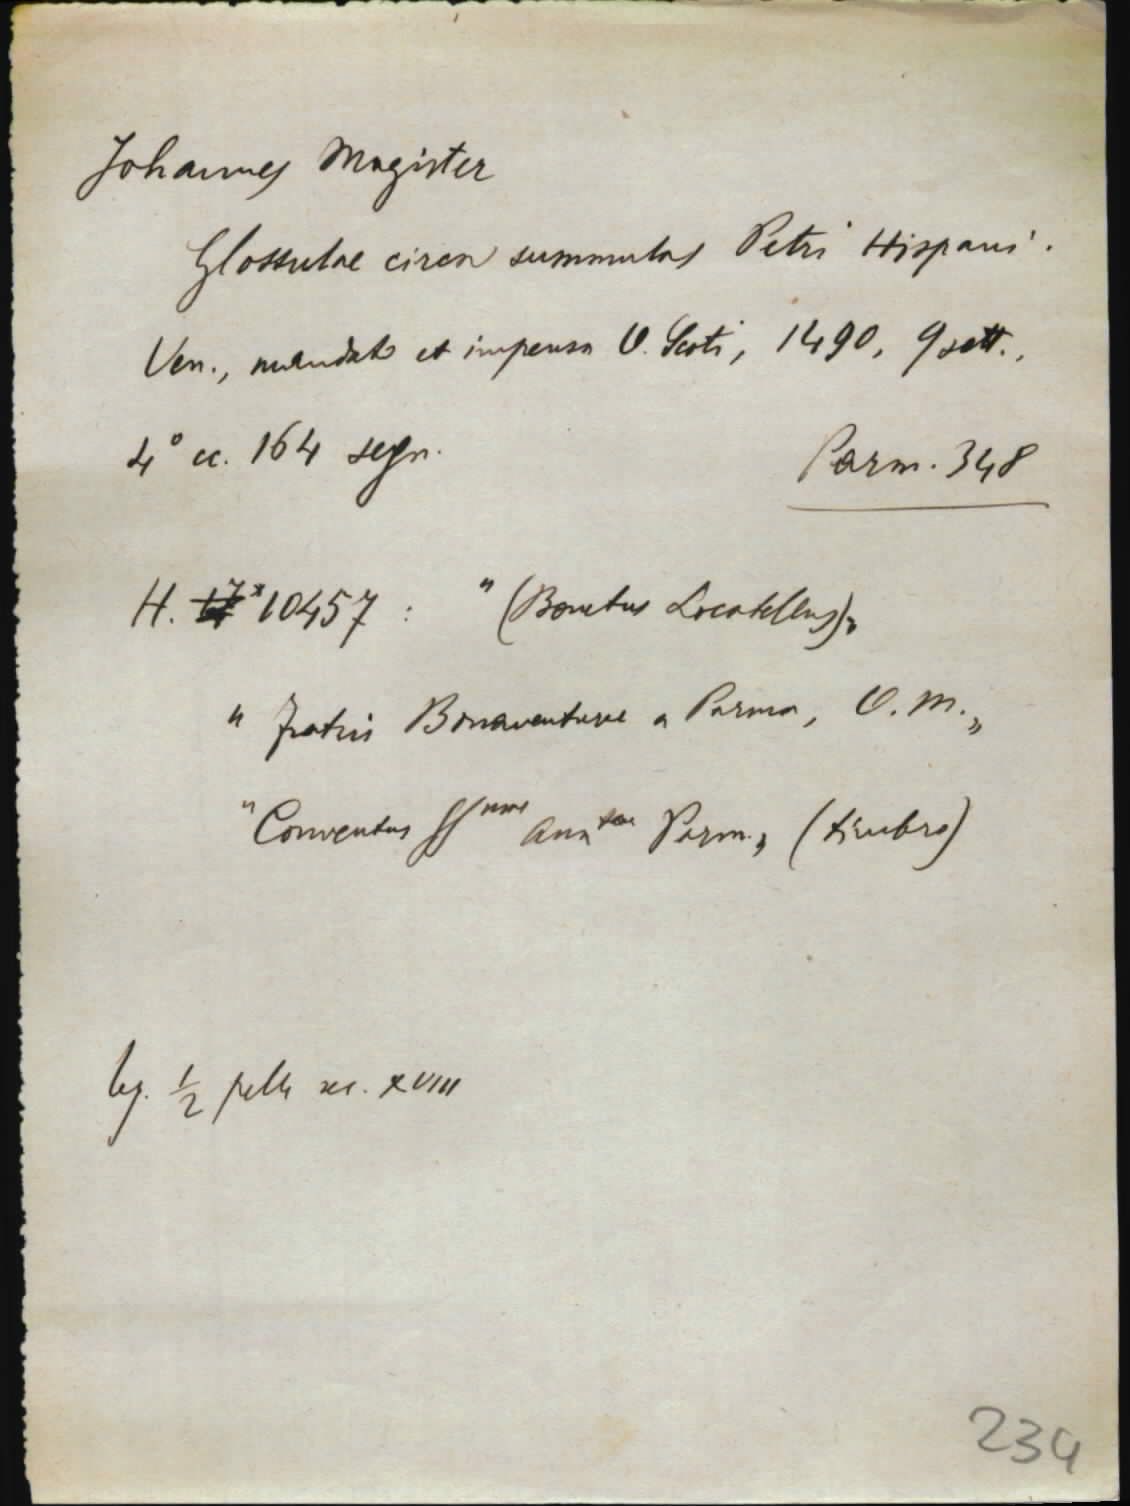 Johannes Magister
Glossulae circa summulas Petri Hispani.
Ven., mandato et impensa O. Scoti, 1490, 9 sett.,
4° cc. 164 segn.
Parm. 348
H. *10457 : "(Bonetus Locatellus)„
"Fratris Bonaventurae a Parma, O. M.„
"Conventus SS. Ann.tae Parm.„ (timbro)
leg. 1/2 pelle sec. XVIII
234